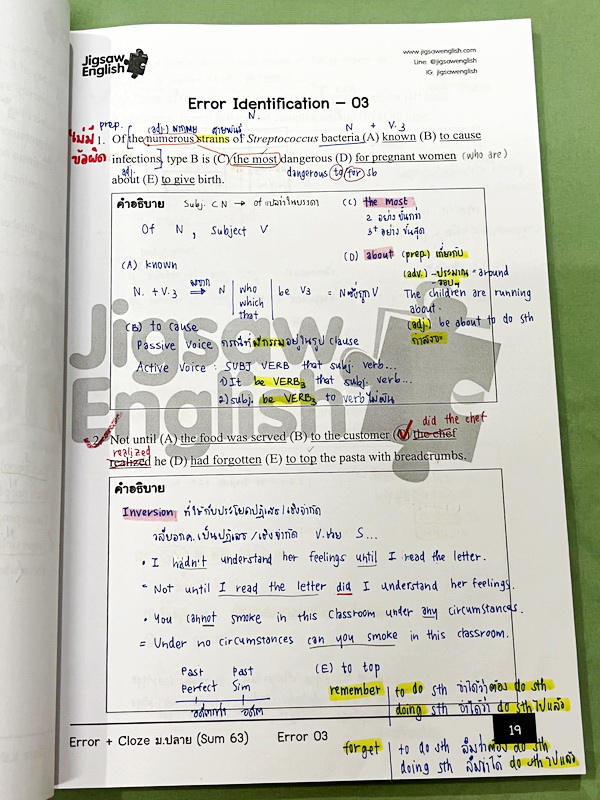 Jigsaw
English
www.jigsawenglish.com
Line: @jigsawenglish
IG: jigsawenglish
Error Identification – 03
N.
prep. (adj.) มากมาย สายพันธุ์ N + V.3
*ไม่มี 1. Of the numerous strains of Streptococcus bacteria (A) known (B) to cause
ข้อผิด infections, type B is (C) the most dangerous (D) for pregnant women (who are)
adj. dangerous to for sb
about (E) to give birth.
คำอธิบาย Subj. ⊂ N → of แปลว่าในบรรดา
Of N , Subject V
(A) known
N. + V.3 ⇒ N who which that be V3 = N ซึ่งถูก V
(B) to cause
Passive Voice กรณีที่มีกรรมอยู่ในรูป clause
Active Voice : SUBJ VERB that subj. verb...
1) It be VERB3 that subj. verb...
2) subj. be VERB3 to verb ไม่ผัน
(C) the most
2 อย่าง ขั้นกว่า
3+ อย่าง ขั้นสุด
(D) about (prep.) เกี่ยวกับ
(adv.) - ประมาณ = around
รอบๆ
The children are running
about.
(adj.) be about to do sth
กำลังจะ
did the chef
2. Not until (A) the food was served (B) to the customer (C) the chef
realized
realized he (D) had forgotten (E) to top the pasta with breadcrumbs.
คำอธิบาย
Inversion ที่ใช้กับประโยคปฏิเสธ/เชิงจำกัด
วลีบอกค. เป็นปฏิเสธ/เชิงจำกัด V.ช่วย S...
• I hadn't understand her feelings until I read the letter.
= Not until I read the letter did I understand her feelings.
• You cannot smoke in this classroom under any circumstances.
= Under no circumstances can you smoke in this classroom.
Past Past
Perfect Sim
อดีตกว่า อดีต
(E) to top
remember to do sth จำได้ว่าต้อง do sth
doing sth จำได้ว่า do sth ไปแล้ว
forget to do sth ลืมว่าต้อง do sth
doing sth ลืมว่าได้ do sth ไปแล้ว
Error + Cloze ม.ปลาย (Sum 63) Error 03
19
Jigsaw
English